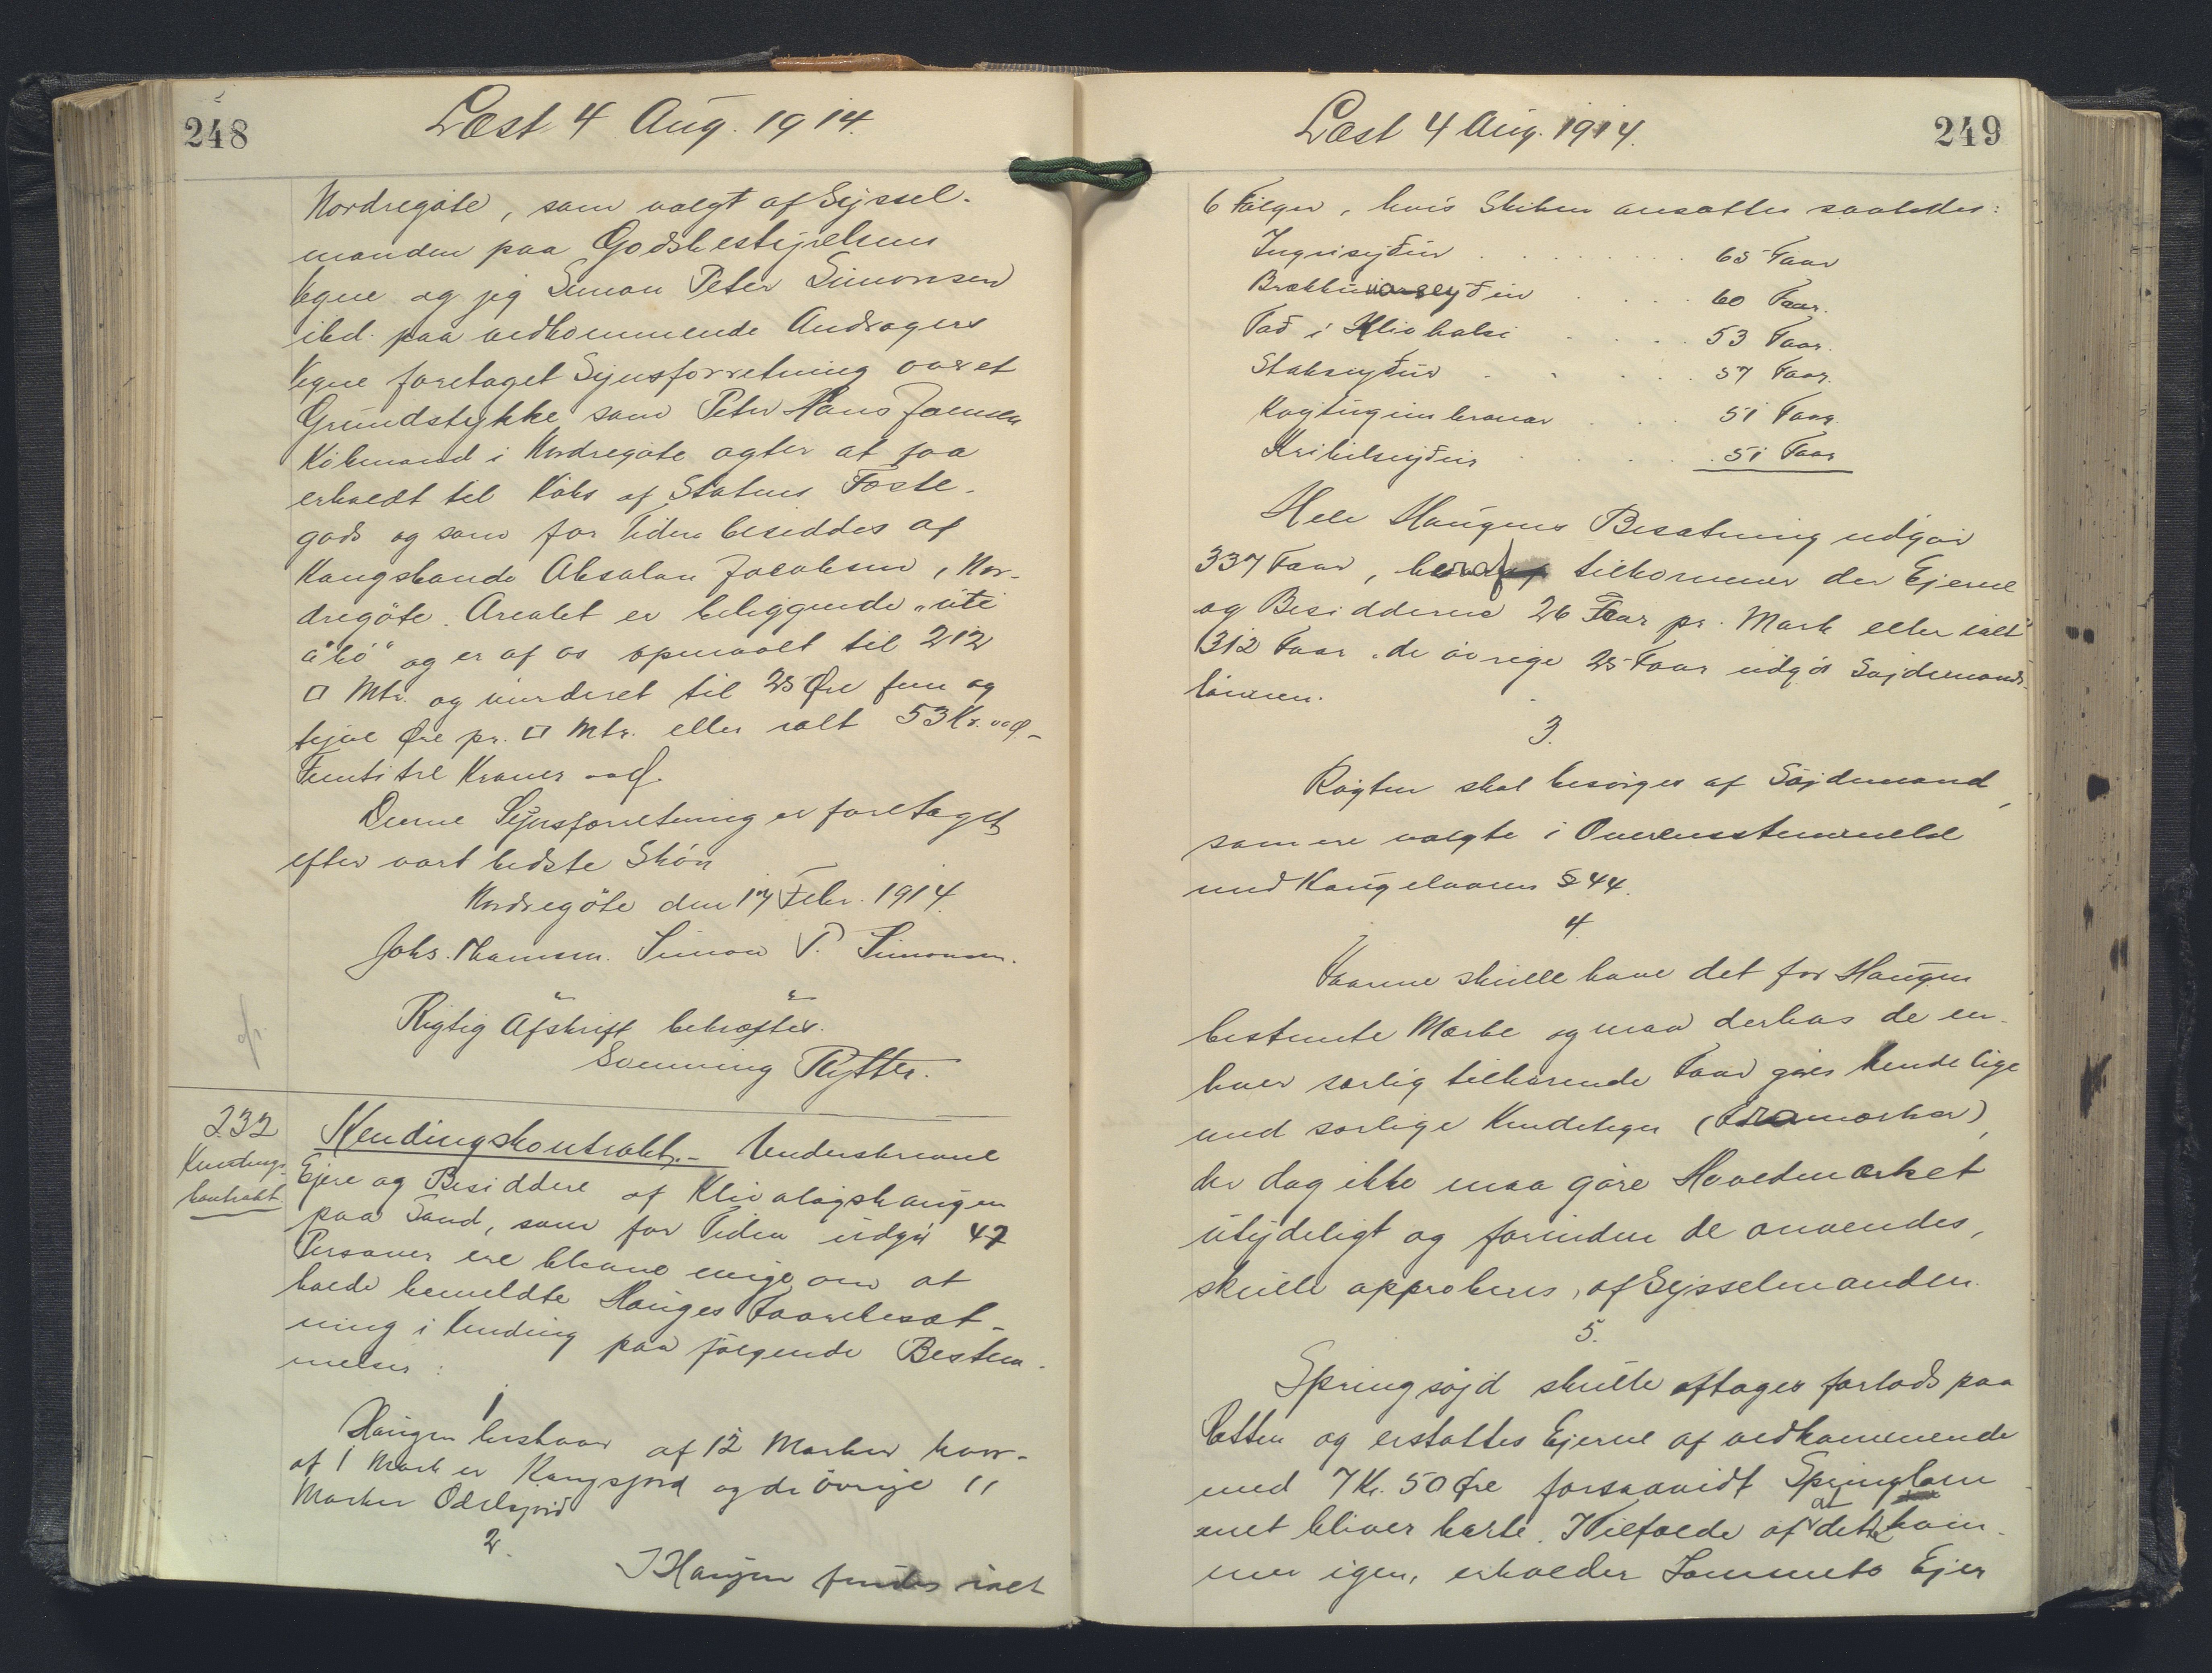 248
Læst 4 Aug. 1914.
Nordregöte, som valgt af Syssel-
manden paa Godsbestyrelsens
Vegne og jeg Simon Peter Simonsen
ibd. paa vedkommende Andragers
Vegne foretaget Synsforretning over et
Grundstykke som Peter Hans Joensen
Köbmand i Nordregöte agter at faa
erholdt til Köbs af Statens Fæste-
gods og som for Tiden besiddes af
Kongsbonde Absalon Jacobsen, Nor-
dregöte. Arealet er beliggende „úti
á bö" og er af os opmaalt til 212
□ Mtr. og vurderet til 25 Øre fem og
tyve Øre pr. □ Mtr. eller ialt 53 Kr. ″Ø-
Femti tre Kroner ″Ø.
Denne Synsforretning er foretaget
efter vort bedste Skön
Nordregöte den 17 Febr. 1914.
Johs. Thomsen. Simon P. Simonsen.
Rigtig Afskrift bekræftes.
Svenning Rytter.
232
Kendings-
kontrakt.
Kendingskontrakt.- Underskrevne
Ejere og Besiddere af Klivaløgshaugen
paa Sand, som for Tiden udgör 47
Personer ere blevne enige om at
holde bemeldte Hauges Faarebesæt-
ning i Kending paa fölgende Bestem-
melser:
1
Haugen bestaar af 12 Marker hvor-
af 1 Mark er Kongsjord og de övrige 11
Marker Odelsjord
2.
I Haugen findes ialt
249
Læst 4 Aug. 1914.
6 Fölger, hvis Skiben ansættes saaledes:
65 Faar
60 Faar.
Fað i Klivhalsi 53 Faar.
Stakseyðin 57 Faar.
51 Faar.
51 Faar
Hele Haugens Besætning udgör
337 Faar, heraf tilkommer der Ejerne
og Besidderne 26 Faar pr. Mark eller ialt
312 Faar, de övrige 25 Faar udgör Söjdemands-
lönnen.
3.
Rögten skal besörges af Söjdemænd,
som ere valgte i Overensstemmelse
med Haugeloven § 44.
4.
Faarene skulle have det for Haugen
bestemte Mærke og maa derhos de en-
hver særlig tilhörende Faar göres kendelige
med særlige Kendetegn
der dog ikke maa göre Hovedmærket
utydeligt og forinden de anvendes,
skulle approberes, af Sysselmanden.
5.
Springsöjd skulle aftages forlods paa
Rætten og erstattes Ejerne af vedkommende
med 7 Kr. 50 Øre forsaavidt Springlam
met bliver borte. I Tilfælde af at det kom-
mer igen, erholder Lammets Ejer